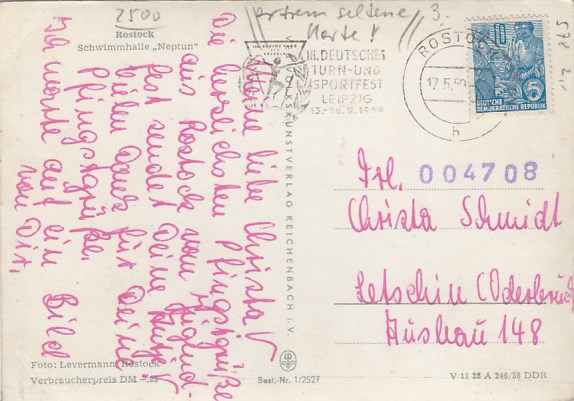 2500
Rostock
Schwimmhalle „Neptun"
extrem seltene
Karte!
3.
578
III. DEUTSCHES
TURN- UND
SPORTFEST
LEIPZIG
ROSTOCK
17.5.59
h
10
5
DEUTSCHE
DEMOKRATISCHE REPUBLIK
Meine liebe Christa!
Die herzlichsten Pfingstgrüße
aus Rostock vom Jugend-
fest sendet Deine
vielen Dank für Deine
Pfingstgrüße.
Ich warte auf ein Bild
von Dir.
VOLKSKUNSTVERLAG REICHENBACH i. V.
Frl. 004708
Christa Schmidt
Letschin (Oderbruch)
Ausbau 148
Foto: Levermann, Rostock
Verbraucherpreis DM -,25
Best.-Nr. 1/2527
V 11 28 A 246/58 DDR